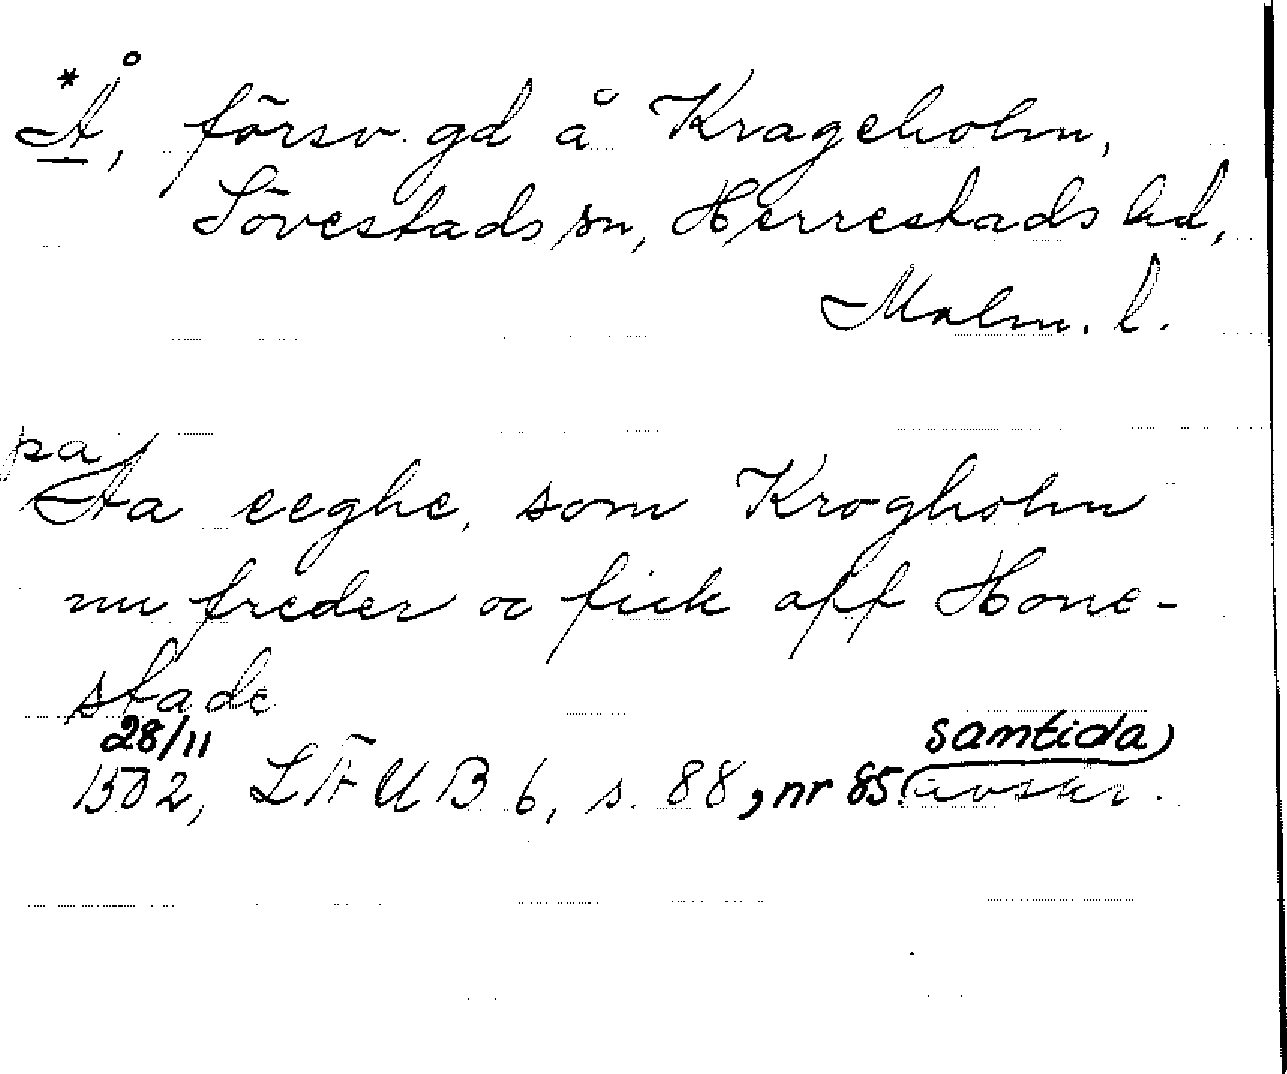 *Å, försv. gd å Krageholm,
Sövestads sn, Herrestads hd,
Malm. l.
pa
Aa eeghe, som Krogholm
nu freder oc fick aff Hone-
stade
28/11 samtida
1502, LÄUB 6, s. 88, nr 85 (avskr.